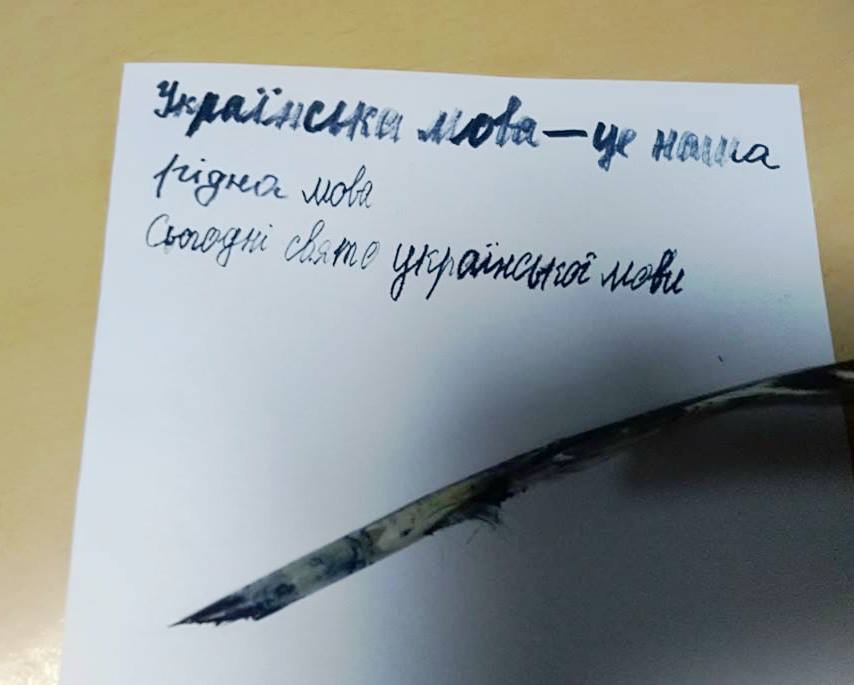 Українська мова — це наша
рідна мова
Сьогодні свято української мови